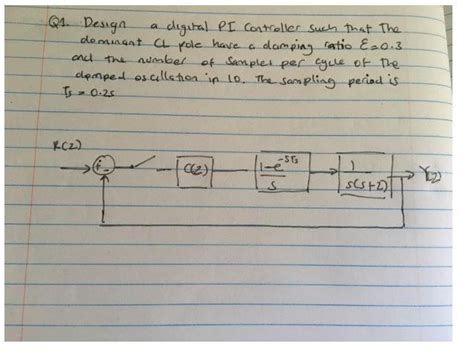 Q1. Design a digital PI Controller such that The
dominant CL pole have a damping ratio ξ=0.3
and the number of samples per cycle of the
damped oscillation in 10. The sampling period is
Ts = 0.2s
R(z)
+
-
C(z)
1-e^-STs
S
1
s(s+2)
Y(z)